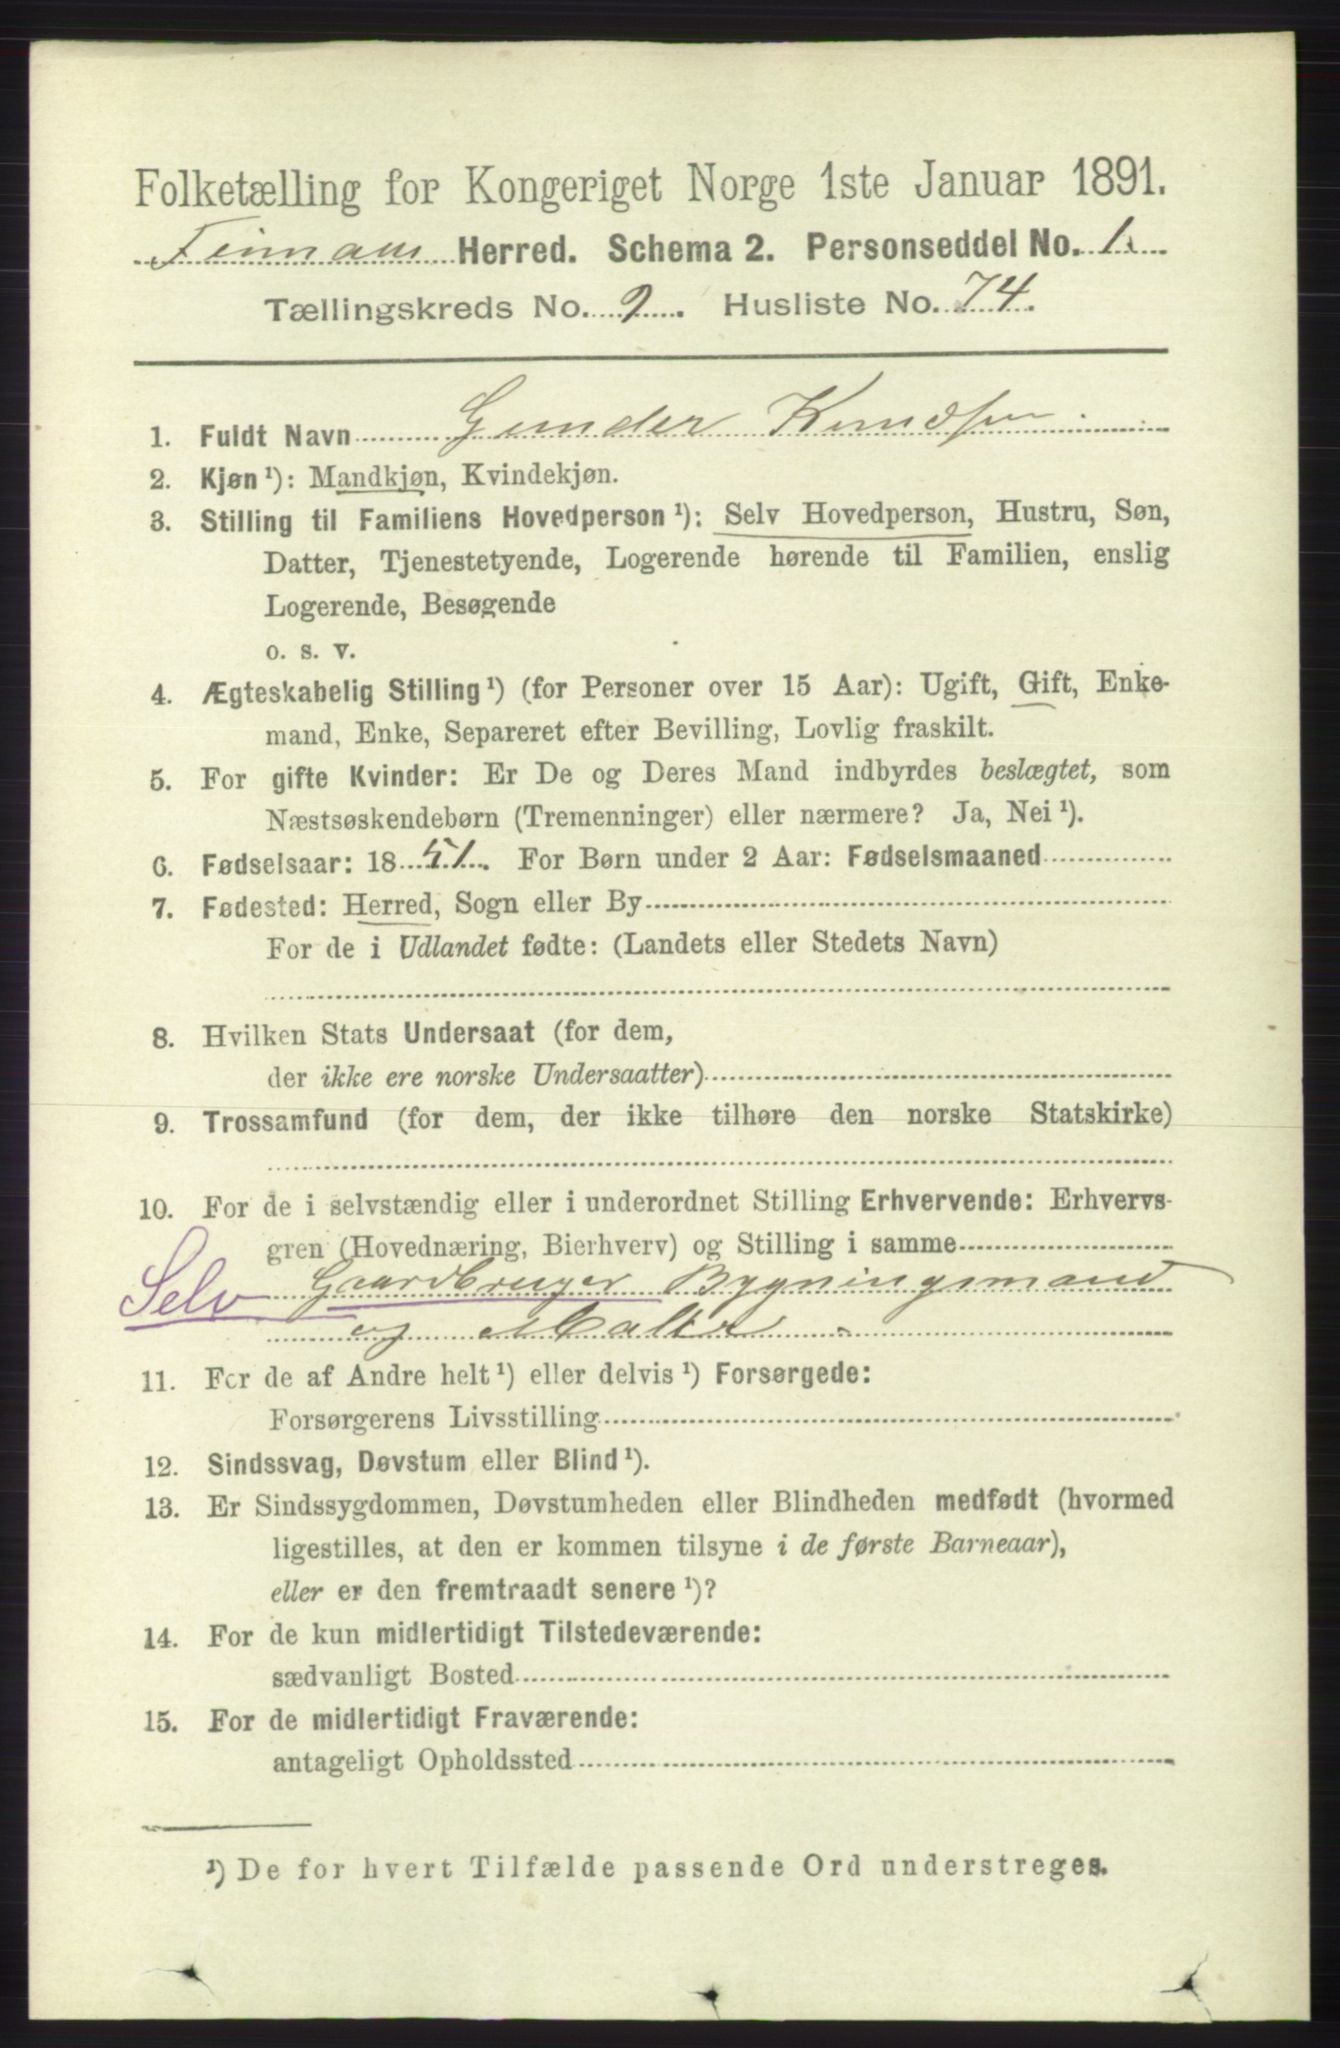 Folketælling for Kongeriget Norge 1ste Januar 1891.
Herred. Schema 2. Personseddel No. 1.
Tællingskreds No. 9. Husliste No. 74.
1. Fuldt Navn Gunder Knudsen
2. Kjøn ¹): Mandkjøn, Kvindekjøn.
3. Stilling til Familiens Hovedperson ¹): Selv Hovedperson, Hustru, Søn,
Datter, Tjenestetyende, Logerende hørende til Familien, enslig
Logerende, Besøgende
o. s. v.
4. Ægteskabelig Stilling ¹) (for Personer over 15 Aar): Ugift, Gift, Enke-
mand, Enke, Separeret efter Bevilling, Lovlig fraskilt.
5. For gifte Kvinder: Er De og Deres Mand indbyrdes beslægtet, som
Næstsøskendebørn (Tremenninger) eller nærmere? Ja, Nei ¹).
6. Fødselsaar: 1851. For Børn under 2 Aar: Fødselsmaaned
7. Fødested: Herred, Sogn eller By
For de i Udlandet fødte: (Landets eller Stedets Navn)
8. Hvilken Stats Undersaat (for dem,
der ikke ere norske Undersaatter)
9. Trossamfund (for dem, der ikke tilhøre den norske Statskirke)
10. For de i selvstændig eller i underordnet Stilling Erhvervende: Erhvervs-
gren (Hovednæring, Bierhverv) og Stilling i samme
Selv Gaardbruger Bygningsmand
og Maler
11. For de af Andre helt ¹) eller delvis ¹) Forsørgede:
Forsørgerens Livsstilling
12. Sindssvag, Døvstum eller Blind ¹).
13. Er Sindssygdommen, Døvstumheden eller Blindheden medfødt (hvormed
ligestilles, at den er kommen tilsyne i de første Barneaar),
eller er den fremtraadt senere ¹)?
14. For de kun midlertidigt Tilstedeværende:
sædvanligt Bosted
15. For de midlertidigt Fraværende:
antageligt Opholdssted
¹) De for hvert Tilfælde passende Ord understreges.